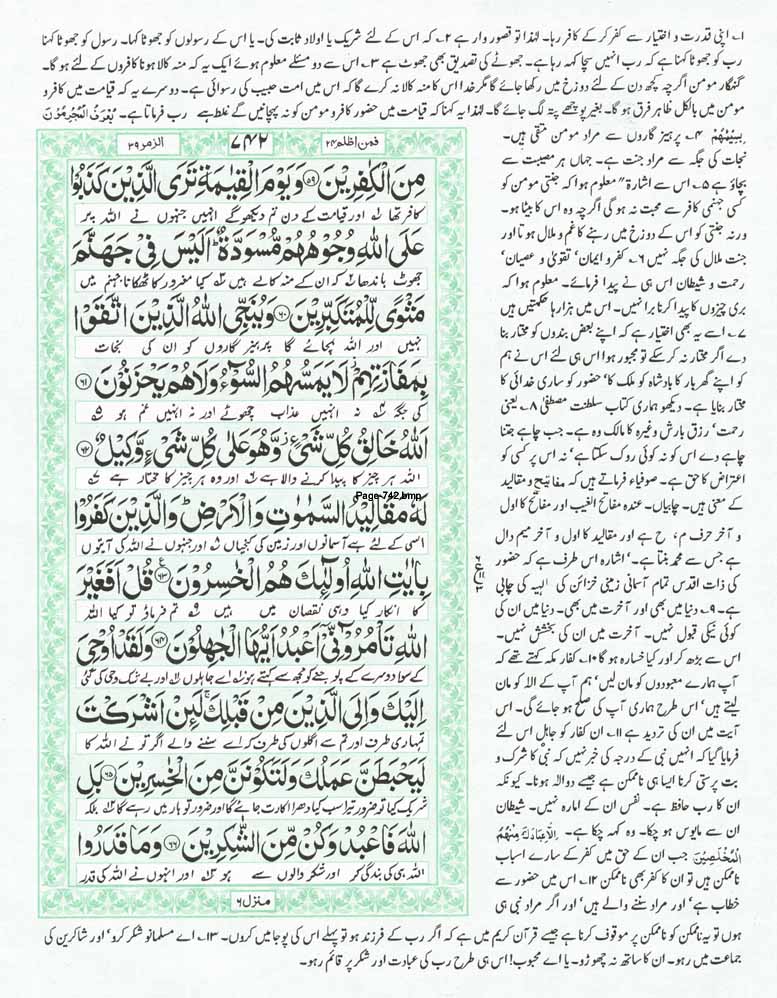 ۱۔ اپنی قدرت و اختیار سے کفر کر کے کافر رہا۔ لہٰذا تو قصور وار ہے ۲۔ کہ اس کے لئے شریک یا اولاد ثابت کی۔ یا اس کے رسولوں کو جھوٹا کہا۔ رسول کو جھوٹا کہنا
رب کو جھوٹا کہنا ہے کہ رب انہیں سچا کہہ رہا ہے۔ جھوٹے کی تصدیق بھی جھوٹ ہے ۳۔ اس سے دو مسئلے معلوم ہوئے ایک یہ کہ منہ کالا ہونا کافروں کے لئے ہو گا۔
گنہگار مومن اگرچہ کچھ دن کے لئے دوزخ میں رکھا جائے گا مگر خدا اس کا منہ کالا نہ کرے گا کہ اس میں امت حبیب کی رسوائی ہے۔ دوسرے یہ کہ قیامت میں کافر و
مومن میں بالکل ظاہر فرق ہو گا۔ بغیر پوچھے پتہ لگ جائے گا۔ لہٰذا یہ کہنا کہ قیامت میں حضور کافر و مومن کو نہ پہچانیں گے غلط ہے رب فرماتا ہے۔ يُعْرَفُ الْمُجْرِمُوْنَ
بِسِيْمٰهُمْ ۴۔ پرہیز گاروں سے مراد مومن متقی ہیں۔
نجات کی جگہ سے مراد جنت ہے۔ جہاں ہر مصیبت سے
بچاؤ ہے ۵۔ اس سے اشارۃً معلوم ہوا کہ جنتی مومن کو
کسی جہنمی کافر سے محبت نہ ہو گی اگرچہ وہ اس کا بیٹا ہو۔
ورنہ جنتی کو اس کے دوزخ میں رہنے کا غم و ملال ہوتا اور
جنت ملال کی جگہ نہیں ۶۔ کفر و ایمان، تقویٰ و عصیان،
رحمت و شیطان اس ہی نے پیدا فرمائے۔ معلوم ہوا کہ
بری چیزوں کا پیدا کرنا برا نہیں۔ اس میں ہزارہا حکمتیں ہیں
۷۔ اسے یہ بھی اختیار ہے کہ اپنے بعض بندوں کو مختار بنا
دے اگر مختار نہ کر سکے تو مجبور ہوا اس ہی لئے اس نے ہم
کو اپنے گھر بار کا بادشاہ کو ملک کا، حضور کو ساری خدائی کا
مختار بنایا ہے۔ دیکھو ہماری کتاب سلطنت مصطفیٰ ۸۔ یعنی
رحمت، رزق بارش وغیرہ کا مالک وہ ہے۔ جب چاہے جتنا
چاہے دے اس کو نہ کوئی روک سکتا ہے، نہ اس پر کسی کو
اعتراض کا حق ہے۔ صوفیاء فرماتے ہیں کہ مفاتیح و مقالید
کے معنی ہیں۔ چابیاں۔ عندہ مفاتح الغیب اور مفاتح کا اول
و آخر حرف م، ح ہے اور مقالید کا اول و آخر میم دال
ہے جس سے محمد بنتا ہے۔ اشارہ اس طرف ہے کہ حضور
کی ذات اقدس تمام آسمانی زمینی خزائن کی الہیہ کی چابی
ہے۔ ۹۔ دنیا میں بھی اور آخرت میں بھی۔ دنیا میں ان کی
کوئی نیکی قبول نہیں۔ آخرت میں ان کی بخشش نہیں۔
اس سے بڑھ کر اور کیا خسارہ ہو گا ۱۰۔ کفار مکہ کہتے تھے کہ
آپ ہمارے معبودوں کو مان لیں، ہم آپ کے الہ کو مان
لیتے ہیں، اس طرح ہماری آپ کی صلح ہو جائے گی۔ اس
آیت میں ان کی تردید ہے ۱۱۔ ان کفار کو جاہل اس لئے
فرمایا گیا کہ انہیں نبی کے درجہ کی خبر نہیں کہ نبی کا شرک و
بت پرستی کرنا ایسا ہی ناممکن ہے جیسے دو الٰہ ہونا۔ کیونکہ
ان کا رب حافظ ہے۔ نفس ان کے امارہ نہیں۔ شیطان
ان سے مایوس ہو چکا۔ وہ کہہ چکا ہے۔ اِلَّا عِبَادَكَ مِنْهُمُ
الْمُخْلَصِيْنَ جب ان کے حق میں کفر کے سارے اسباب
ناممکن ہیں تو ان کا کفر بھی ناممکن ۱۲۔ اس میں حضور سے
خطاب ہے، اور مراد سننے والے ہیں، اور اگر مراد نبی ہی
ہوں تو یہ ناممکن کو ناممکن پر موقوف کرنا ہے جیسے قرآن کریم میں ہے کہ اگر رب کے فرزند ہو تو پہلے اس کی پوجا میں کروں۔ ۱۳۔ اے مسلمانو شکر کرو، اور شاکرین کی
جماعت میں رہو۔ ان کا ساتھ نہ چھوڑو۔ یا اے محبوب! اس ہی طرح رب کی عبادت اور شکر پر قائم رہو۔
فمن اظلم ۲۴ ۷۴۲ الزمر ۳۹
مِنَ الْكٰفِرِيْنَ ۵۹ وَيَوْمَ الْقِيٰمَةِ تَرَى الَّذِيْنَ كَذَبُوْا
کافر تھا اور قیامت کے دن تم دیکھو گے انہیں جنہوں نے اللہ پر
عَلَى اللّٰهِ وُجُوْهُهُمْ مُّسْوَدَّةٌ ؕ اَلَيْسَ فِيْ جَهَنَّمَ
جھوٹ باندھا کہ ان کے منہ کالے ہیں کیا مغرور کا ٹھکانا جہنم میں
مَثْوًى لِّلْمُتَكَبِّرِيْنَ ۶۰ وَيُنَجِّي اللّٰهُ الَّذِيْنَ اتَّقَوْا
نہیں اور اللہ بچائے گا پرہیز گاروں کو ان کی نجات
بِمَفَازَتِهِمْ ؗ لَا يَمَسُّهُمُ السُّوْٓءُ وَلَا هُمْ يَحْزَنُوْنَ ۶۱
کی جگہ نہ انہیں عذاب چھوئے اور نہ انہیں غم ہو
اَللّٰهُ خَالِقُ كُلِّ شَيْءٍ ؗ وَّهُوَ عَلٰى كُلِّ شَيْءٍ وَّكِيْلٌ ۶۲
اللہ ہر چیز کا پیدا کرنے والا ہے اور وہ ہر چیز کا مختار ہے
Page-742.bmp
لَهٗ مَقَالِيْدُ السَّمٰوٰتِ وَالْاَرْضِ ؕ وَالَّذِيْنَ كَفَرُوْا
اسی کے لئے ہے آسمانوں اور زمین کی کنجیاں اور جنہوں نے اللہ کی آیتوں
بِاٰيٰتِ اللّٰهِ اُولٰٓئِكَ هُمُ الْخٰسِرُوْنَ ۶۳ قُلْ اَفَغَيْرَ
کا انکار کیا وہی نقصان میں ہیں تم فرماؤ تو کیا اللہ
اللّٰهِ تَاْمُرُوْٓنِّيْٓ اَعْبُدُ اَيُّهَا الْجٰهِلُوْنَ ۶۴ وَلَقَدْ اُوْحِيَ
کے سوا دوسرے کے پوجنے کو مجھ سے کہتے ہو اے جاہلو اور بے شک وحی کی گئی
اِلَيْكَ وَاِلَى الَّذِيْنَ مِنْ قَبْلِكَ ۚ لَئِنْ اَشْرَكْتَ
تمہاری طرف اور تم سے اگلوں کی طرف کہ اے سننے والے اگر تو نے اللہ کا
لَيَحْبَطَنَّ عَمَلُكَ وَلَتَكُوْنَنَّ مِنَ الْخٰسِرِيْنَ ۶۵ بَلِ
شریک کیا تو ضرور تیرا سب کیا دھرا اکارت جائے گا اور ضرور تو ہار میں رہے گا بلکہ
اللّٰهَ فَاعْبُدْ وَكُنْ مِّنَ الشّٰكِرِيْنَ ۶۶ وَمَا قَدَرُوا
اللہ ہی کی بندگی کر اور شکر والوں سے ہو اور انہوں نے اللہ کی قدر
منزل ۶